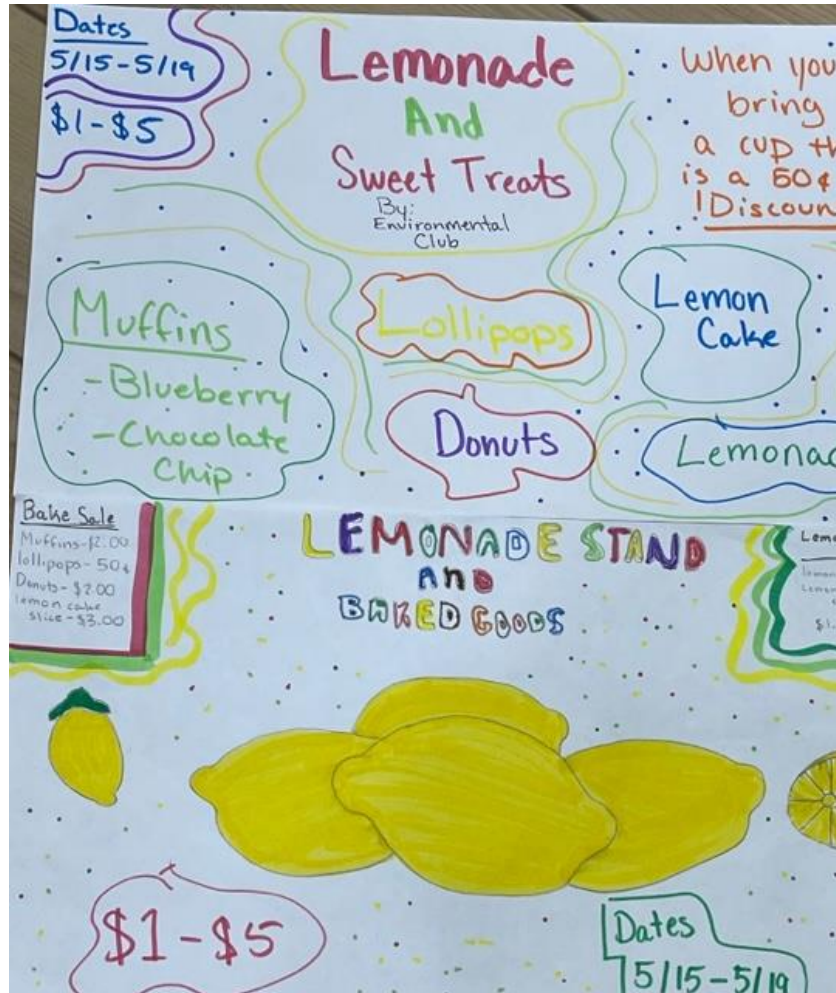 Dates
5/15-5/19
$1-$5
Lemonade
And
Sweet Treats
By:
Environmental
Club
When you
bring
a cup th
is a 50¢
!Discoun
Muffins
-Blueberry
-Chocolate
Chip
Lollipops
Donuts
Lemon
Cake
Lemonad
Bake Sale
Muffins-$2.00
lollipops-50¢
Donuts-$2.00
lemon cake
slice-$3.00
LEMONADE STAND
AND
BAKED GOODS
Lemo
$1.
$1-$5
Dates
5/15-5/19